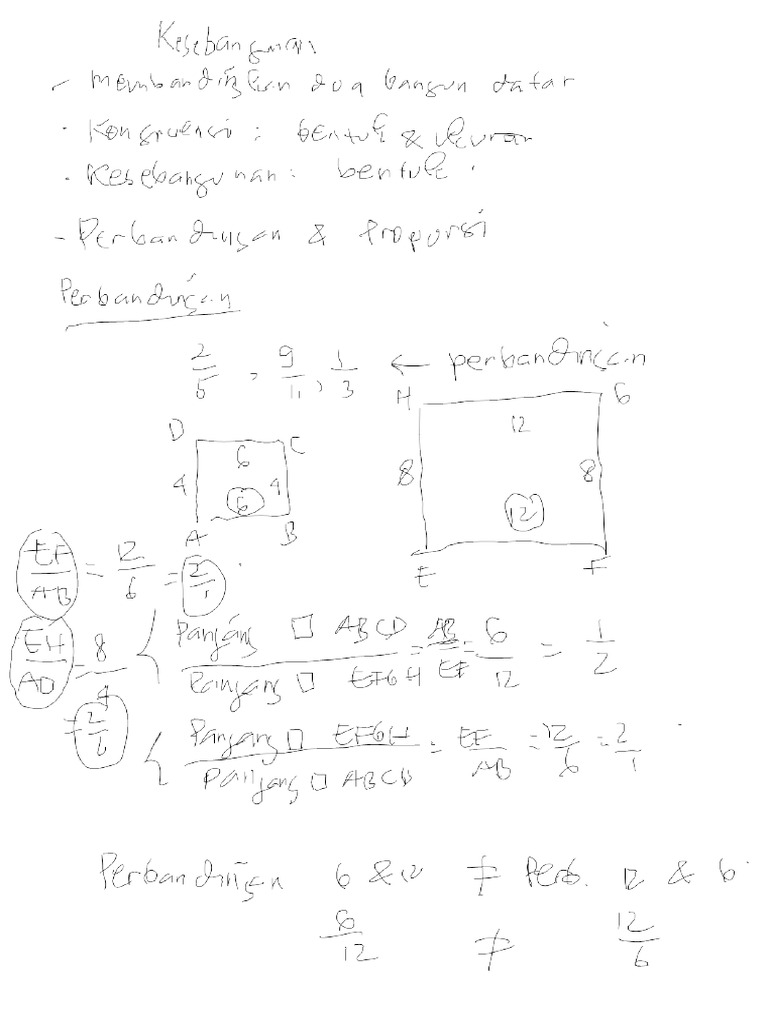 Kesebangunan
- Membandingkan dua bangun datar
· Kongruensi : bentuk & ukuran
· Kesebangunan : bentuk .
- Perbandingan & Proporsi
Perbandingan
2/5 , 9/11 , 1/3 ← perbandingan
D C
6
4 4
6
A B
H G
12
8 8
12
E F
EF/AB = 12/6 = 2/1 .
EH/AD = 8/4
= 2/1
Panjang □ ABCD / Panjang □ EFGH = AB/EF = 6/12 = 1/2
Panjang □ EFGH / Panjang □ ABCD = EF/AB = 12/6 = 2/1 .
Perbandingan 6 & 12 ≠ Perb. 12 & 6
6/12 ≠ 12/6